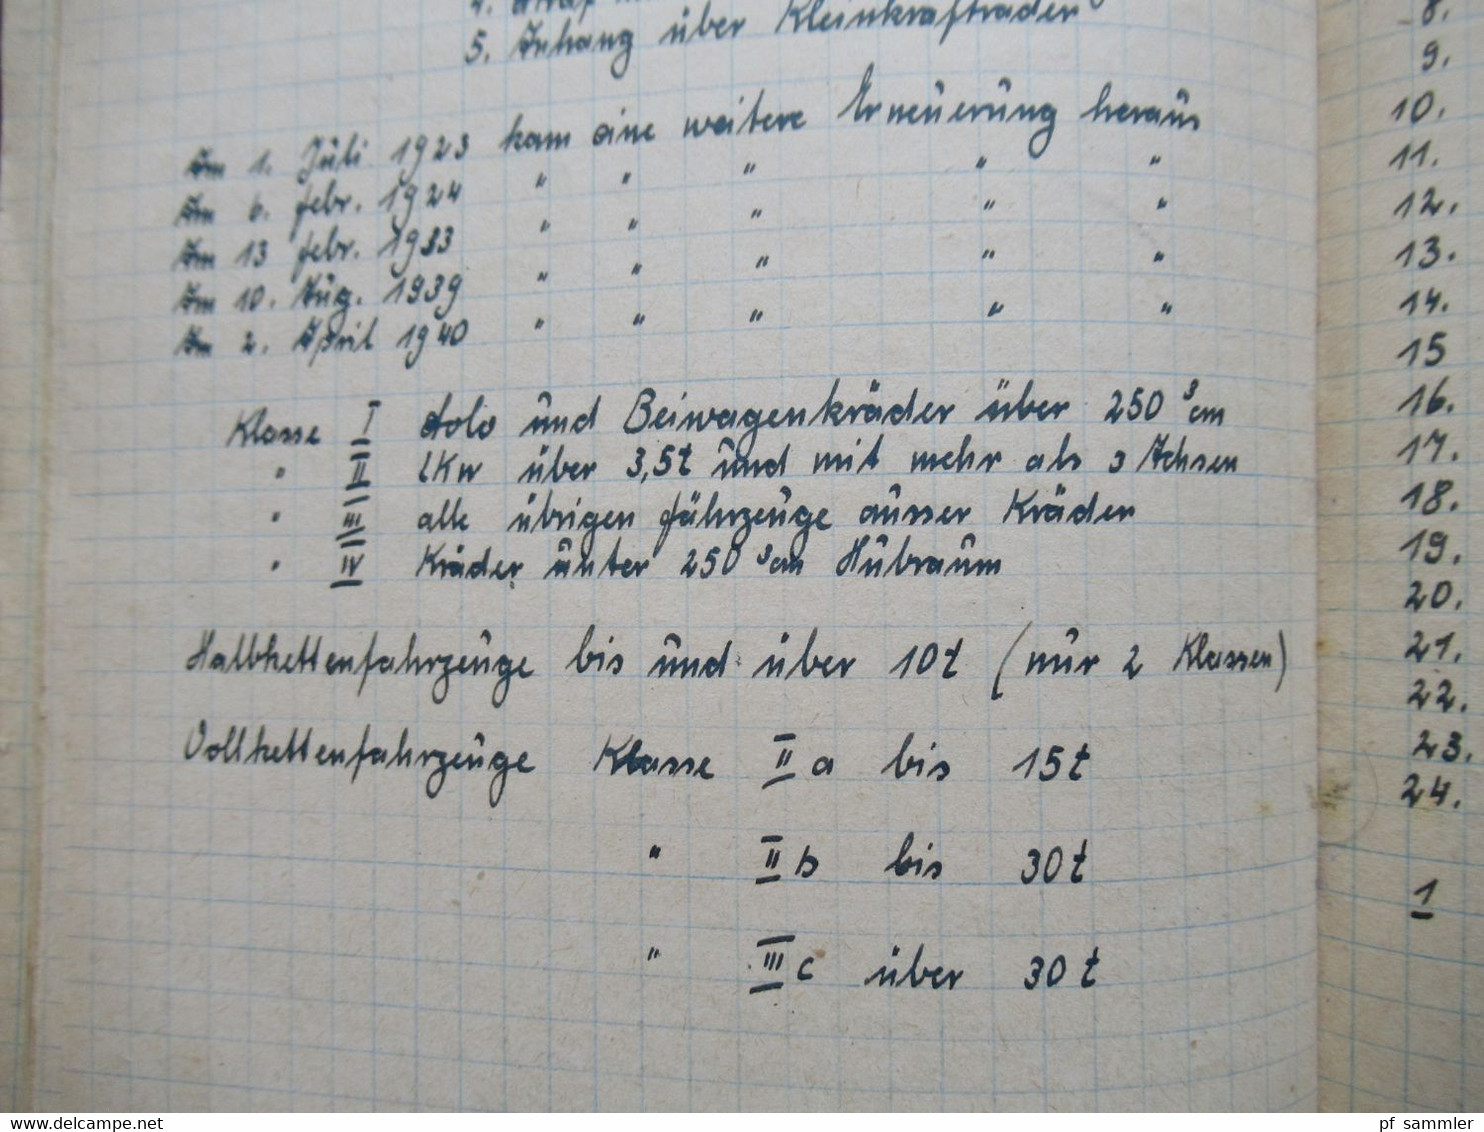 5. Anhang über Kleinkrafträder
Am 1. Juli 1923 kam eine weitere Erneuerung heraus
Am 6. febr. 1924 " " " " "
Am 13 febr. 1933 " " " " "
Am 10. Aug. 1939 " " " " "
Am 2. April 1940 " " " " "
Klasse I Solo und Beiwagenkräder über 250 ³cm
" II LKw über 3,5t und mit mehr als 3 Achsen
" III alle übrigen fährzeuge ausser Kräder
" IV Kräder unter 250 ³cm Hubraum
Halbkettenfahrzeuge bis und über 10t (nur 2 Klassen)
Vollkettenfahrzeuge Klasse II a bis 15t
" II b bis 30t
" III c über 30t
8.
9.
10.
11.
12.
13.
14.
15
16.
17.
18.
19.
20.
21.
22.
23.
24.
1
www.delcampe.net
pf_sammler